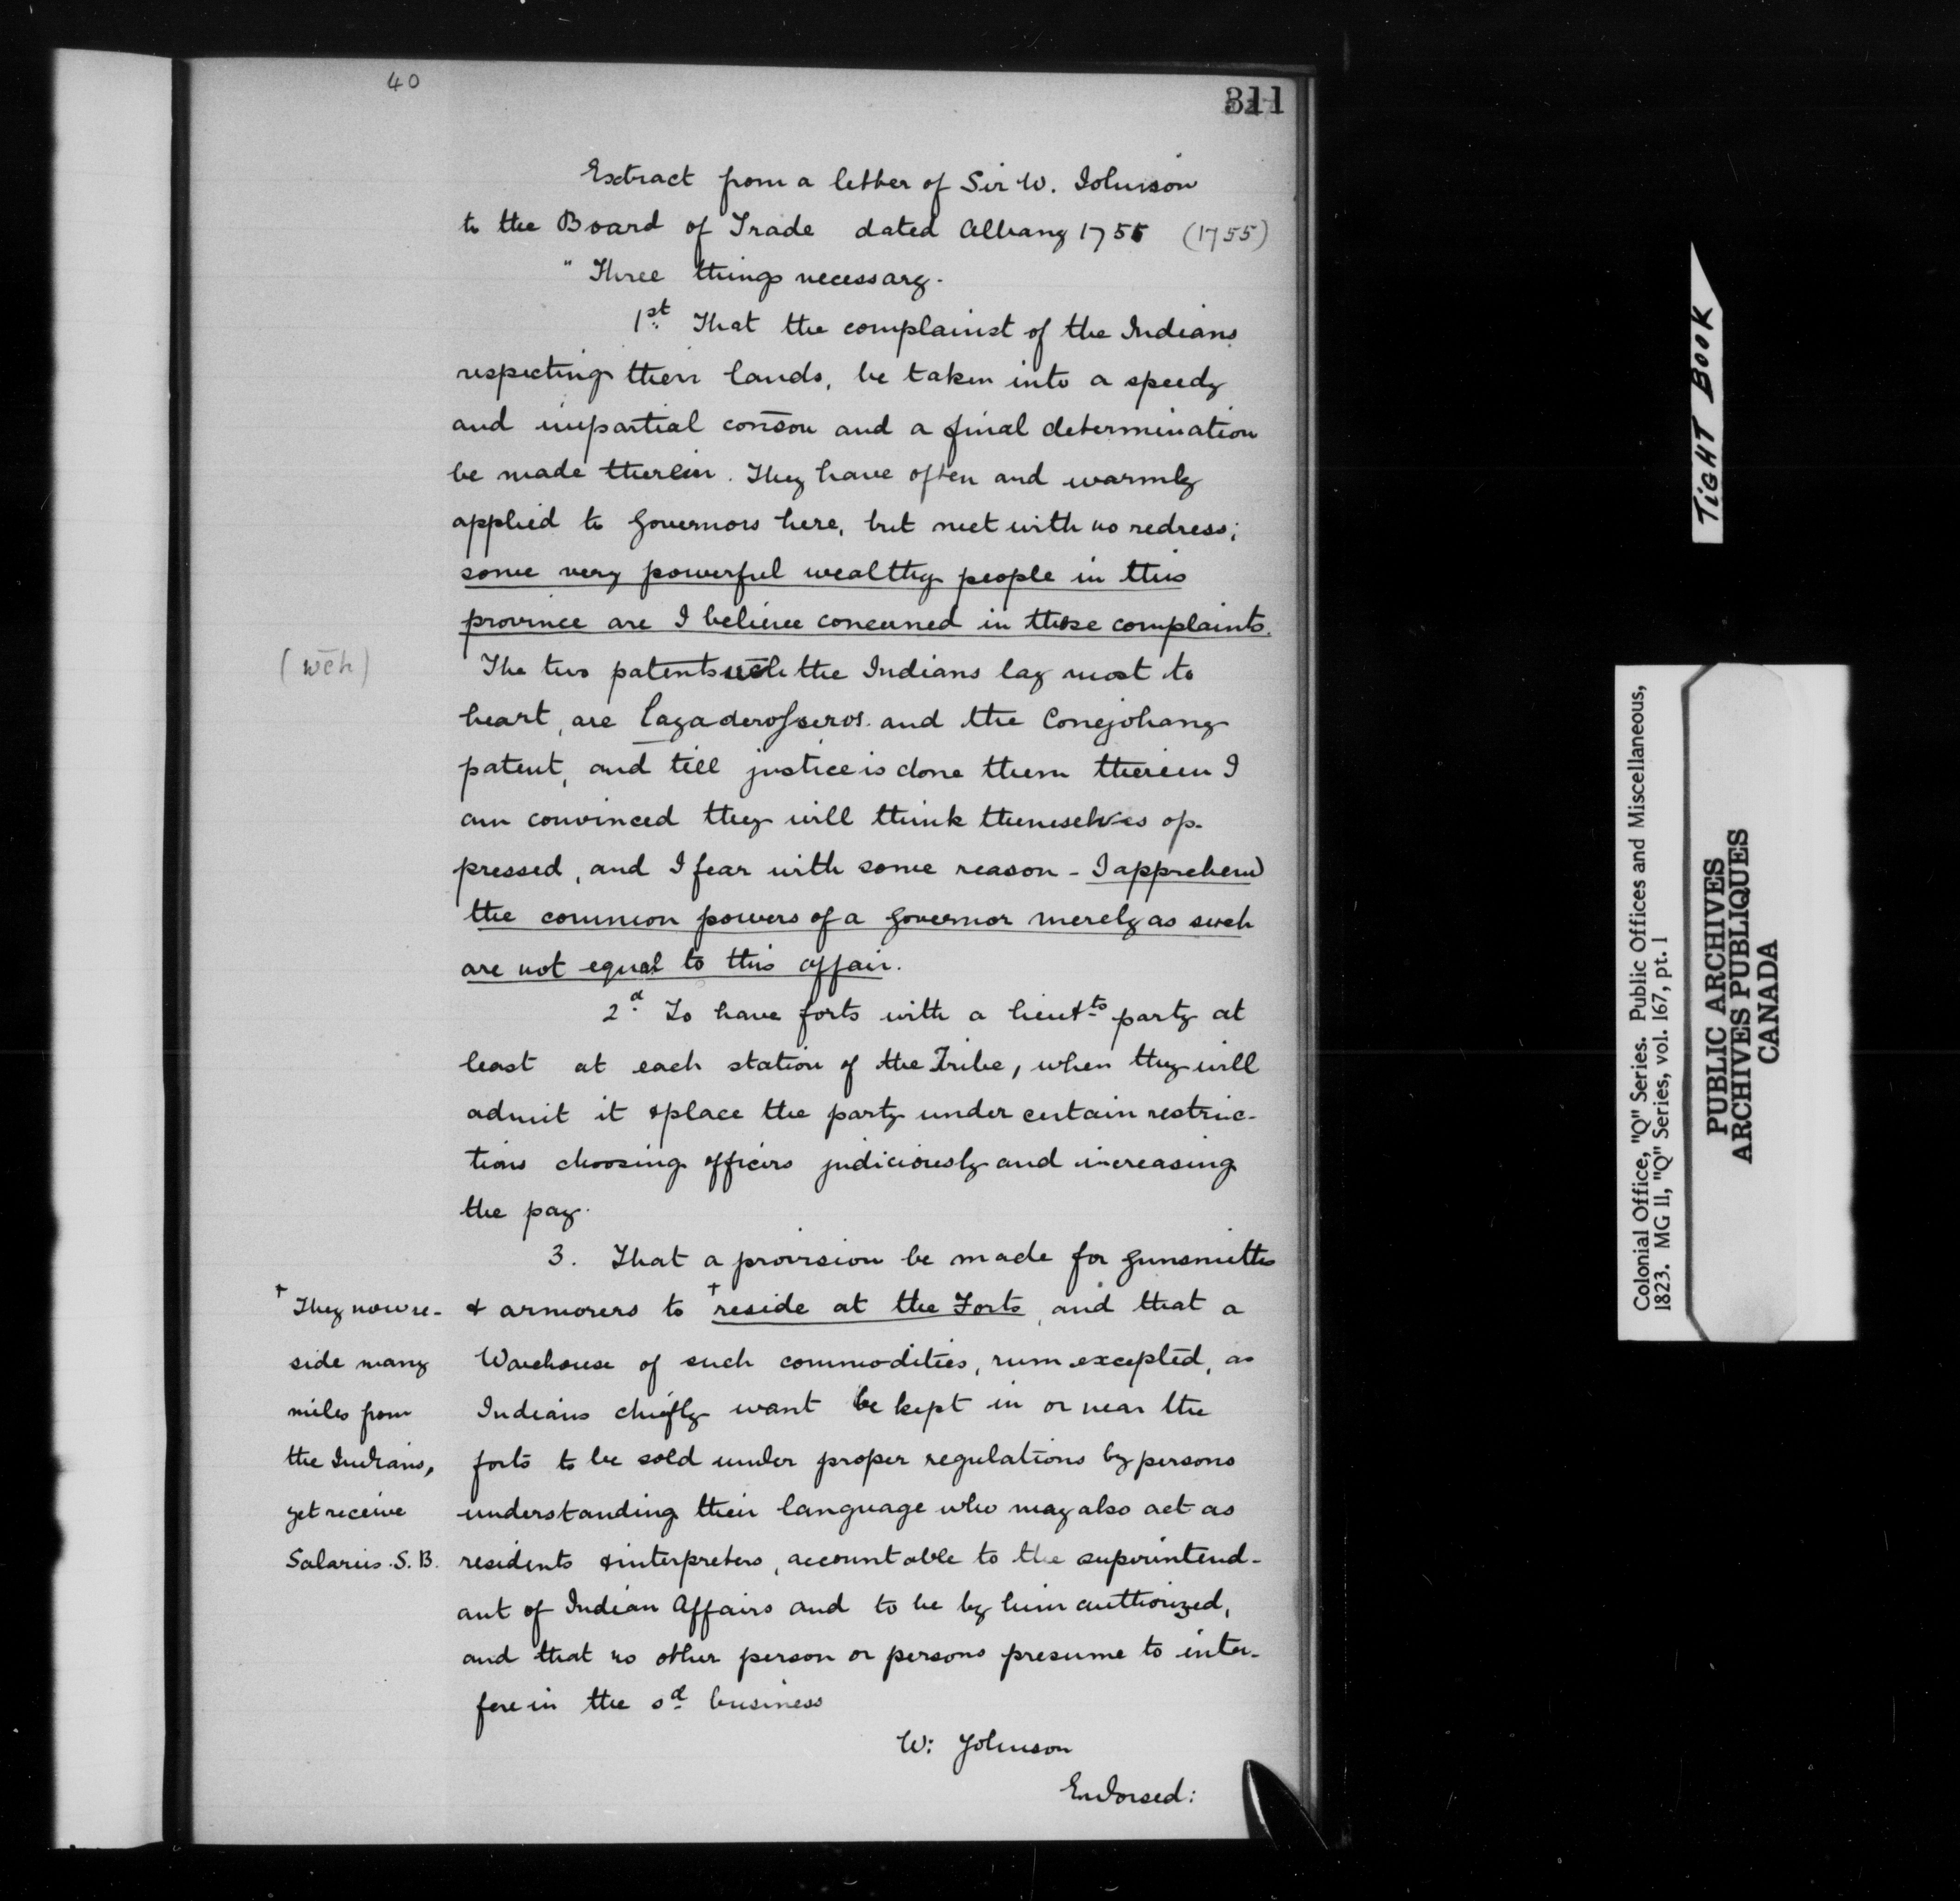 40
311
Extract from a letter of Sir W. Johnson
to the Board of Trade dated Albany 1755 (1755)
" Three things necessary.
1st That the complainst of the Indians
respecting their lands, be taken into a speedy
and impartial conson and a final determination
be made therein. They have often and warmly
applied to Governors here, but meet with no redress;
some very powerful wealthy people in this
province are I believe concerned in those complaints.
(wch)
The two patents wch the Indians lay most to
heart, are and the Conejohany
patent, and till justice is done them therein I
am convinced they will think themselves op-
pressed, and I fear with some reason - I apprehend
the common powers of a Governor merely as such
are not equal to this affair.
2d To have forts with a lieutts party at
least at each station of the Tribe, when they will
admit it & place the party under certain restric-
tions choosing officers judiciously and increasing
the pay.
3. That a provision be made for gunsmiths
& armorers to + reside at the Forts, and that a
Warehouse of such commodities, rum excepted, as
Indians chiefly want be kept in or near the
forts to be sold under proper regulations by persons
understanding their language who may also act as
residents & interpreters, accountable to the superintend-
ant of Indian Affairs and to be by him authorized,
and that no other person or persons presume to inter-
fere in the sd business
W: Johnson
Endorsed:
+ They now re-
side many
miles from
the Indians,
yet receive
Salaries. S. B.
TIGHT BOOK
Colonial Office, "Q" Series. Public Offices and Miscellaneous,
1823. MG 11, "Q" Series, vol. 167, pt. 1
PUBLIC ARCHIVES
ARCHIVES PUBLIQUES
CANADA